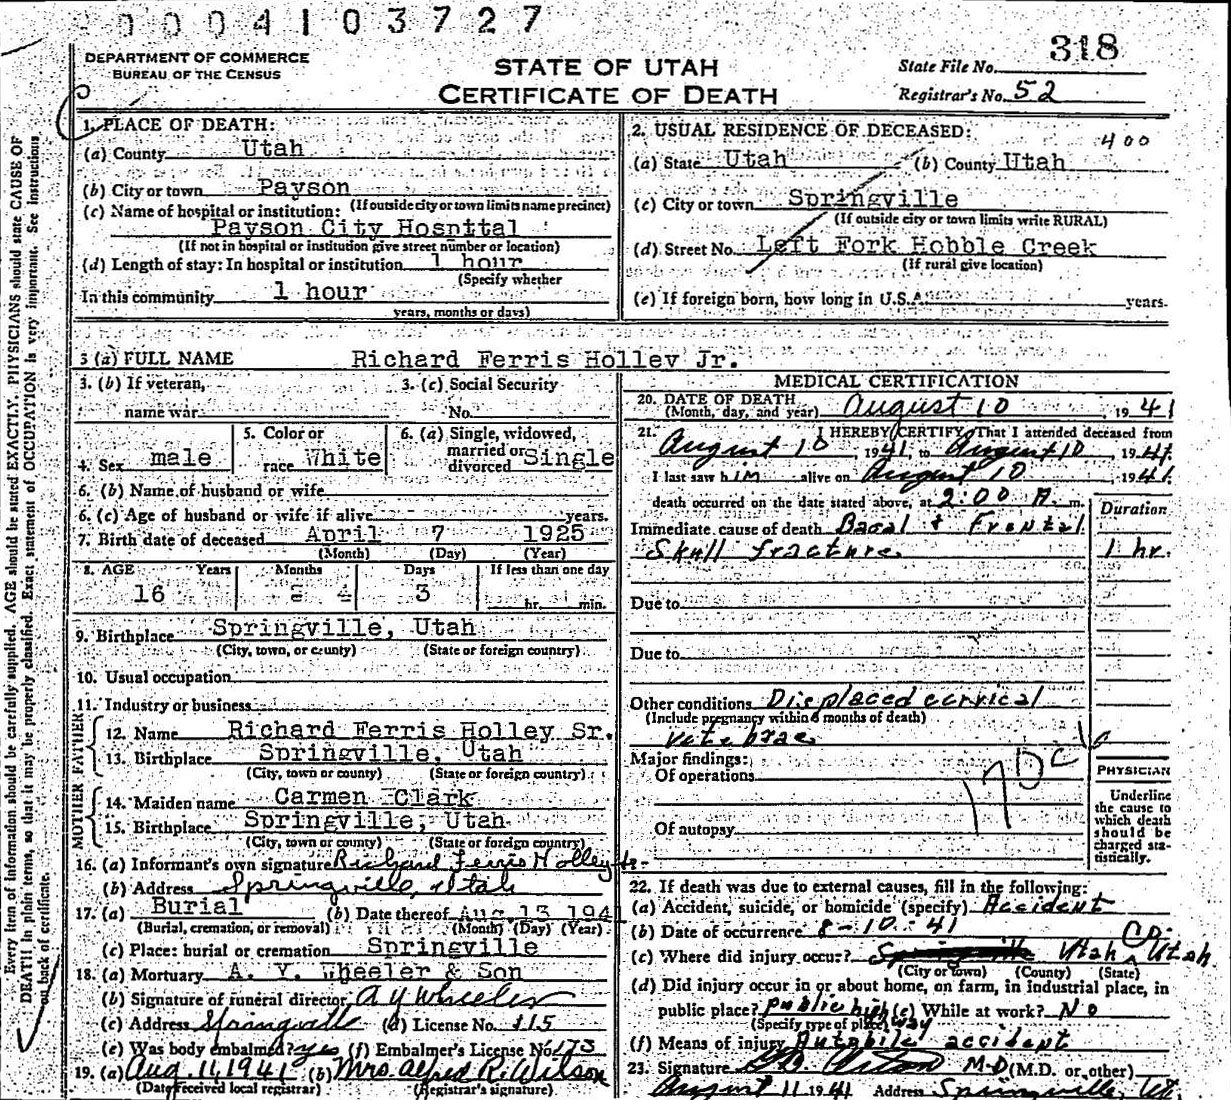 0004103727
318
DEPARTMENT OF COMMERCE
BUREAU OF THE CENSUS
STATE OF UTAH
CERTIFICATE OF DEATH
State File No.
Registrar's No. 52
Every item of information should be carefully supplied. AGE should be stated EXACTLY. PHYSICIANS should state CAUSE OF
DEATH in plain terms, so that it may be properly classified. Exact statement of OCCUPATION is very important. See instructions
on back of certificate.
1. PLACE OF DEATH:
(a) County Utah
(b) City or town Payson
(If outside city or town limits name precinct)
(c) Name of hospital or institution:
Payson City Hospttal
(If not in hospital or institution give street number or location)
(d) Length of stay: In hospital or institution 1 hour
(Specify whether
In this community 1 hour
years, months or days)
2. USUAL RESIDENCE OF DECEASED:
400
(a) State Utah (b) County Utah
(c) City or town Springville
(If outside city or town limits write RURAL)
(d) Street No. Left Fork Hobble Creek
(If rural give location)
(e) If foreign born, how long in U.S.A. years.
3 (a) FULL NAME Richard Ferris Holley Jr.
3. (b) If veteran, 3. (c) Social Security
name war No.
4. Sex male 5. Color or race White 6. (a) Single, widowed, married or divorced Single
6. (b) Name of husband or wife
6. (c) Age of husband or wife if alive years.
7. Birth date of deceased April 7 1925
(Month) (Day) (Year)
8. AGE Years Months Days If less than one day
16 4 3 hr. min.
9. Birthplace Springville, Utah
(City, town, or county) (State or foreign country)
10. Usual occupation
11. Industry or business
FATHER
12. Name Richard Ferris Holley Sr.
13. Birthplace Springville, Utah
(City, town or county) (State or foreign country)
MOTHER
14. Maiden name Carmen Clark
15. Birthplace Springville, Utah
(City, town or county) (State or foreign country)
16. (a) Informant's own signature Richard Ferris Holley
(b) Address Springville, Utah
17. (a) Burial (b) Date thereof Aug. 13 1941
(Burial, cremation, or removal) (Month) (Day) (Year)
(c) Place: burial or cremation Springville
18. (a) Mortuary A. Y. Wheeler & Son
(b) Signature of funeral director A Y Wheeler
(c) Address Springville (d) License No. 115
(e) Was body embalmed? yes (f) Embalmer's License No. 173
19. (a) Aug. 11, 1941 (b) Mrs. Alfred R. Wilson
(Date received local registrar) (Registrar's signature)
MEDICAL CERTIFICATION
20. DATE OF DEATH
(Month, day, and year) August 10, 1941
21. I HEREBY CERTIFY, That I attended deceased from
August 10, 1941, to August 10 1941.
I last saw him alive on August 10 1941
death occurred on the date stated above, at 2:00 A. m.
Duration
Immediate cause of death Basal + Frontal
Skull fracture. 1 hr.
Due to
Due to
Other conditions Displaced cervical
(Include pregnancy within 6 months of death)
vetebrae
Major findings:
Of operations
170c
Of autopsy
PHYSICIAN
Underline
the cause to
which death
should be
charged sta-
tistically.
22. If death was due to external causes, fill in the following:
(a) Accident, suicide, or homicide (specify) Accident
(b) Date of occurrence 8-10-41
(c) Where did injury occur? Utah Co. Utah
(City or town) (County) (State)
(d) Did injury occur in or about home, on farm, in industrial place, in
public place? public highway (e) While at work? No
(Specify type of place)
(f) Means of injury Autobile accident
23. Signature M.D. (M.D. or other)
August 11 1941 Address Springville, Ut.